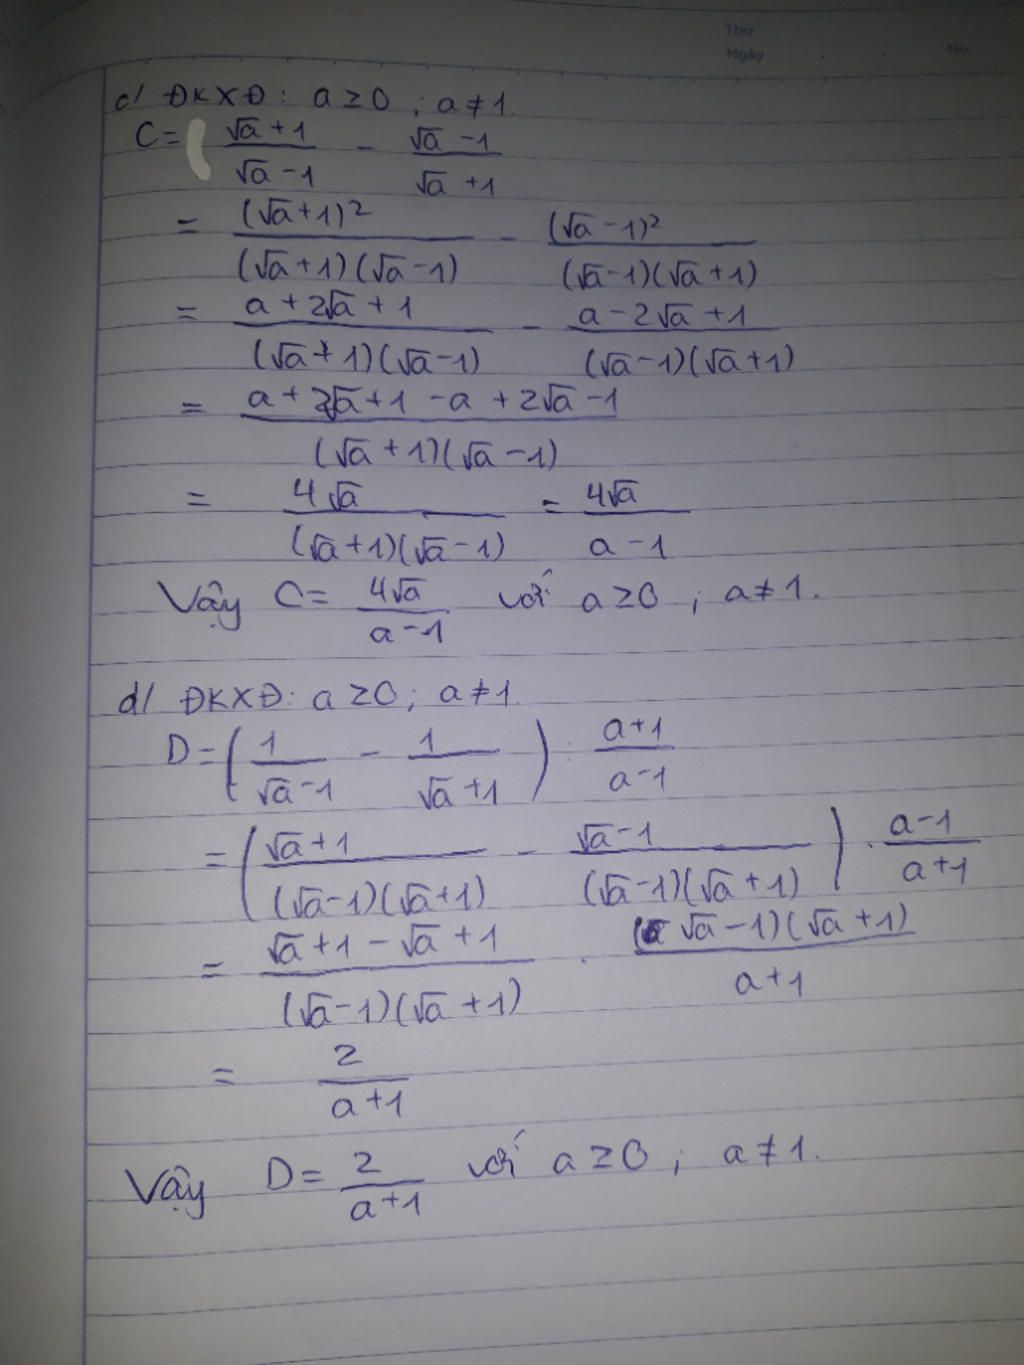 Thứ
Ngày . . No.
c/ ĐKXĐ: a ≥ 0 ; a ≠ 1.
C = (√a + 1)/(√a - 1) - (√a - 1)/(√a + 1)
= (√a + 1)²/((√a + 1)(√a - 1)) - (√a - 1)²/((√a - 1)(√a + 1))
= (a + 2√a + 1)/((√a + 1)(√a - 1)) - (a - 2√a + 1)/((√a - 1)(√a + 1))
= (a + 2√a + 1 - a + 2√a - 1)/((√a + 1)(√a - 1))
= 4√a/((√a + 1)(√a - 1)) = 4√a/(a - 1)
Vậy C = 4√a/(a - 1) với a ≥ 0 ; a ≠ 1.
d/ ĐKXĐ: a ≥ 0 ; a ≠ 1.
D = (1/(√a - 1) - 1/(√a + 1)) : (a + 1)/(a - 1)
= ((√a + 1)/((√a - 1)(√a + 1)) - (√a - 1)/((√a - 1)(√a + 1))) . (a - 1)/(a + 1)
= (√a + 1 - √a + 1)/((√a - 1)(√a + 1)) . ((√a - 1)(√a + 1))/(a + 1)
= 2/(a + 1)
Vậy D = 2/(a + 1) với a ≥ 0 ; a ≠ 1.